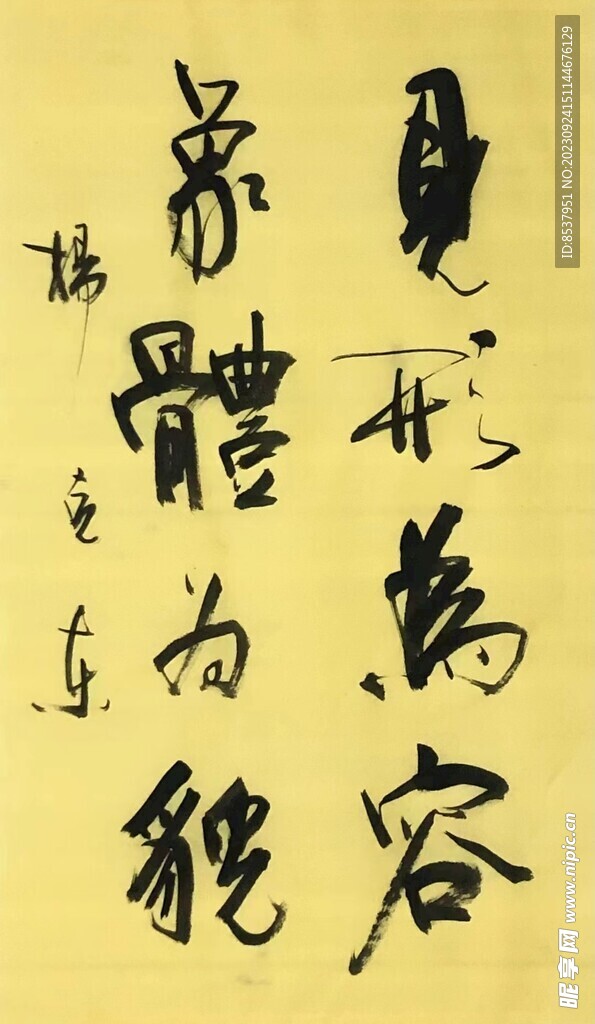 見形為容
象體为貌
楊克東
ID:8537951 NO:20230924151144676129
昵享网 www.nipic.cn